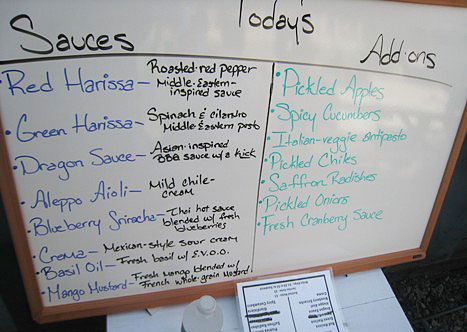 Today's
Sauces
Add-ons
Red Harissa – Roasted red pepper
Middle-Eastern-
inspired sauce
Green Harissa – Spinach & cilantro
Middle Eastern pesto
Dragon Sauce – Asian-inspired
BBQ sauce w/ a kick
Aleppo Aioli – Mild chile-
cream
Blueberry Sriracha – Thai hot sauce
blended w/ fresh
blueberries
Crema – Mexican-style sour cream
Basil Oil – Fresh basil w/ E.V.O.O.
Mango Mustard – Fresh mango blended w/
French whole-grain mustard
Pickled Apples
Spicy Cucumbers
Italian-veggie antipasto
Pickled Chiles
Saffron Radishes
Pickled Onions
Fresh Cranberry Sauce